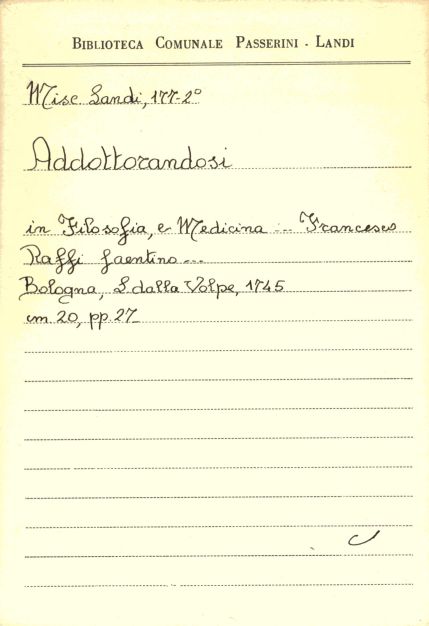 BIBLIOTECA COMUNALE PASSERINI - LANDI
Misc. Landi, 177-2°
Addottorandosi
in Filosofia, e Medicina ... Francesco
Raffi faentino ...
Bologna, L. dalla Volpe, 1745
cm. 20, pp. 27